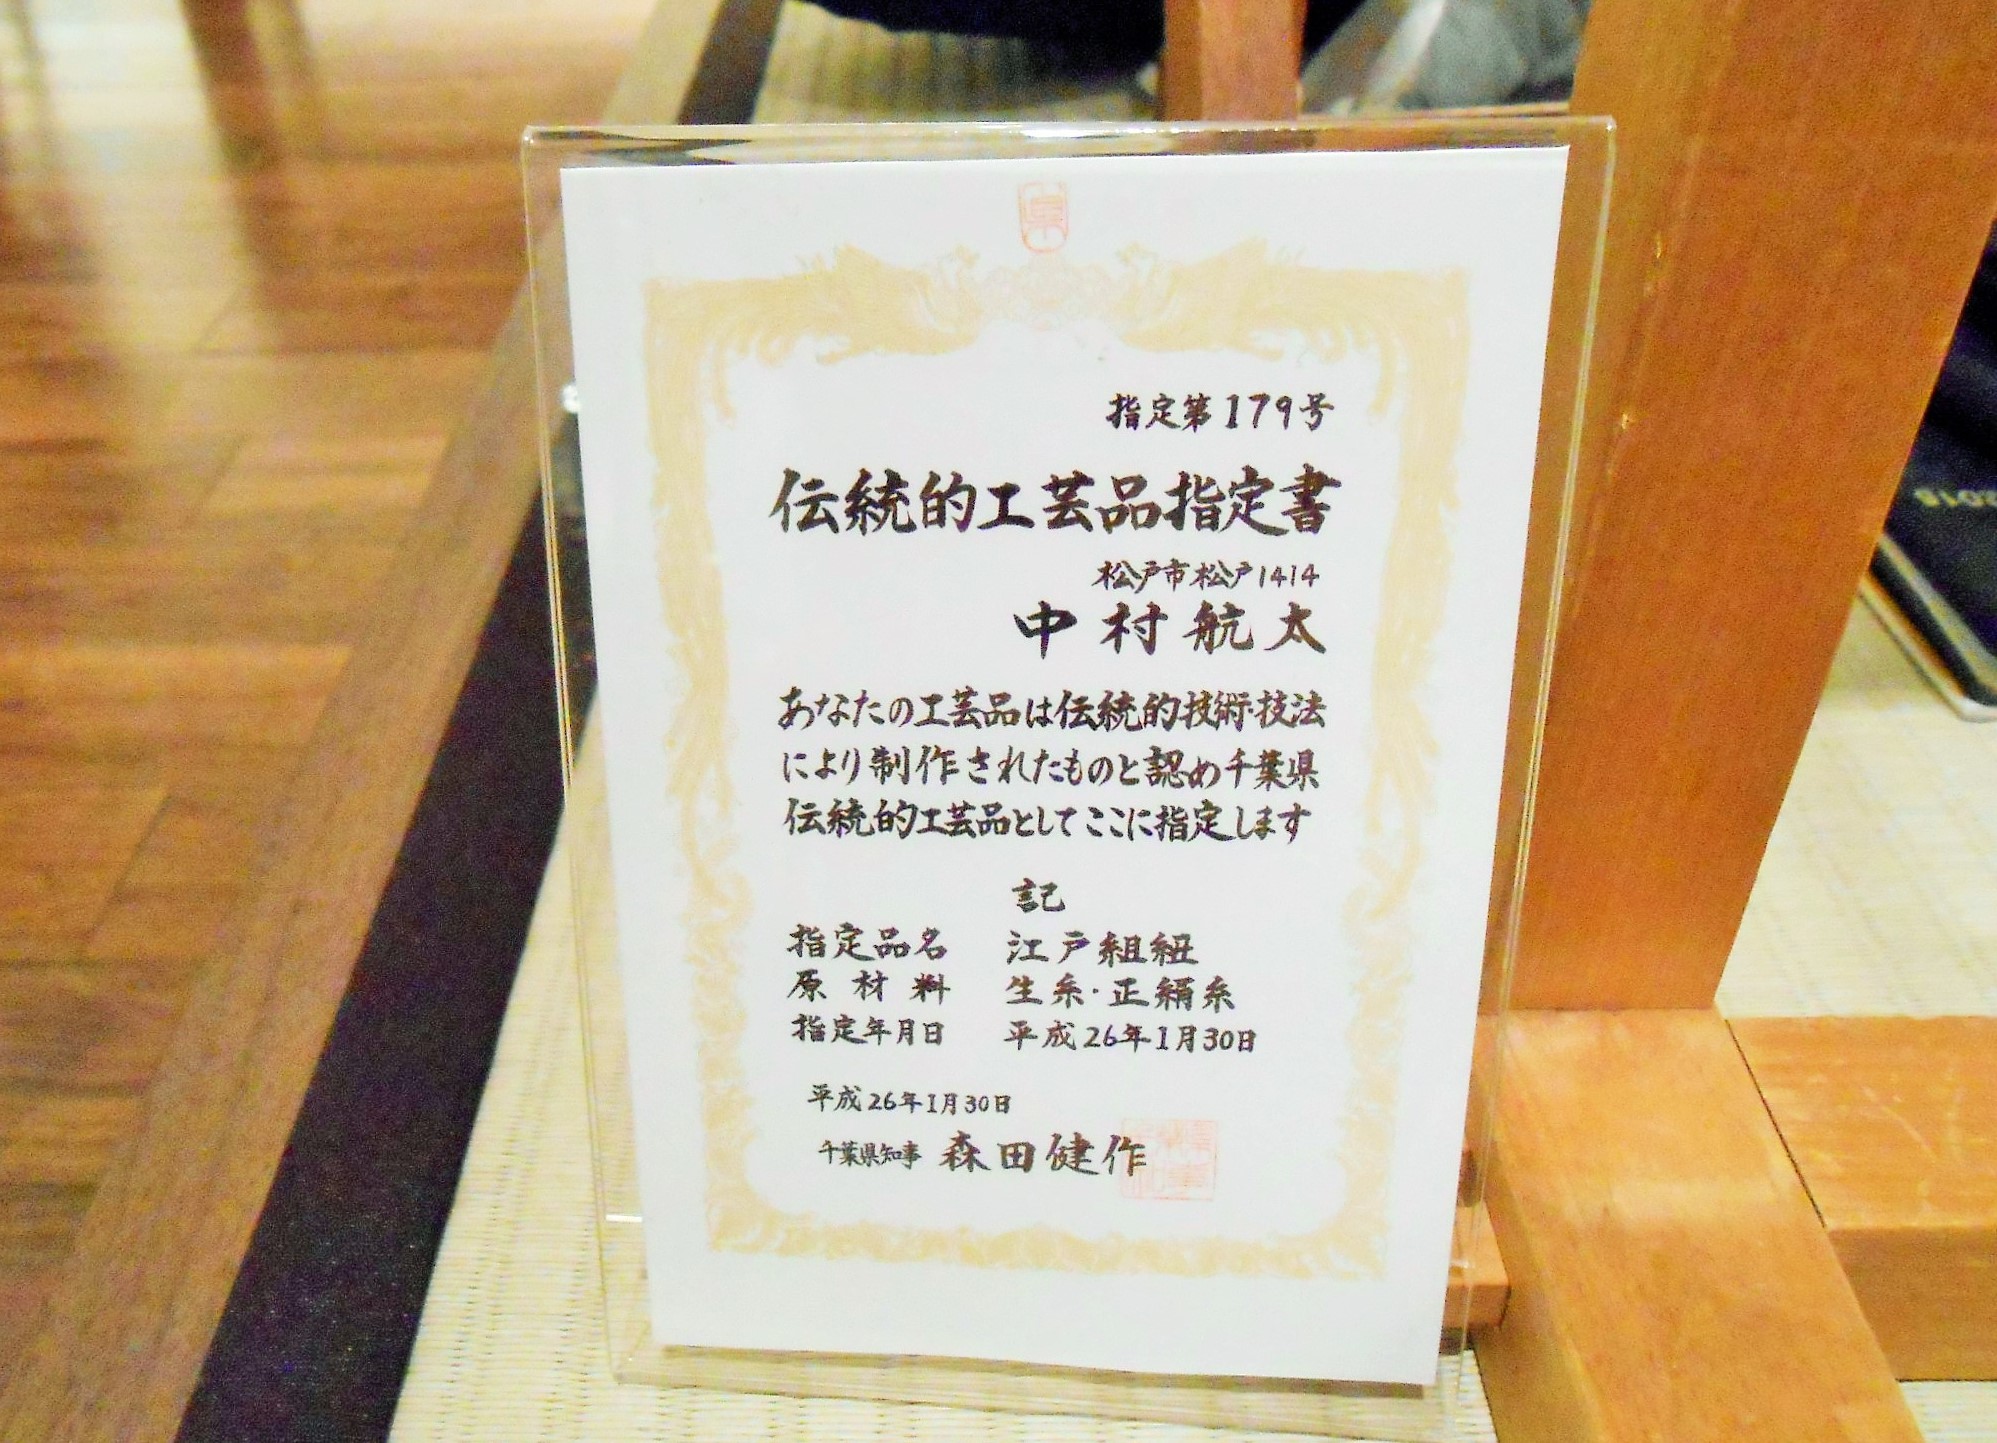 指定第179号
伝統的工芸品指定書
松戸市松戸1414
中村航太
あなたの工芸品は伝統的技術・技法
により制作されたものと認め千葉県
伝統的工芸品としてここに指定します
記
指定品名 江戸組紐
原材料 生糸・正絹糸
指定年月日 平成26年1月30日
平成26年1月30日
千葉県知事 森田健作
2015